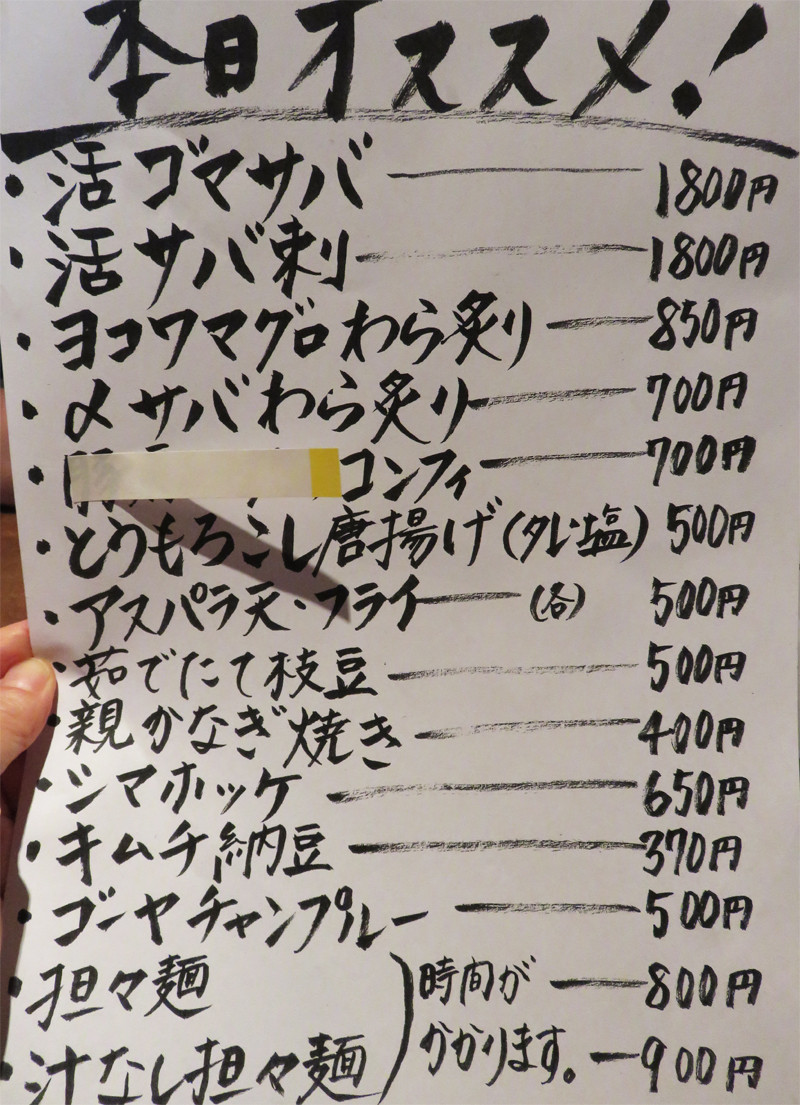 本日オススメ!
・活ゴマサバ 1800円
・活サバ刺 1800円
・ヨコワマグロわら炙り 850円
・〆サバわら炙り 700円
・コンフィ 700円
・とうもろこし唐揚げ(タレ・塩) 500円
・アスパラ天・フライ (各) 500円
・茹でたて枝豆 500円
・親かなぎ焼き 400円
・シマホッケ 650円
・キムチ納豆 370円
・ゴーヤチャンプルー 500円
・担々麺 時間が 800円
・汁なし担々麺 かかります。 900円